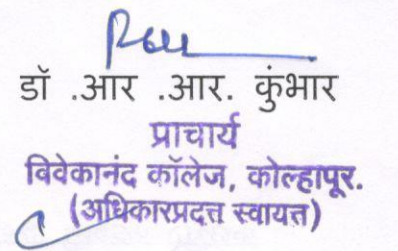 डॉ .आर .आर. कुंभार
प्राचार्य
विवेकानंद कॉलेज, कोल्हापूर.
(अधिकारप्रदत्त स्वायत्त)